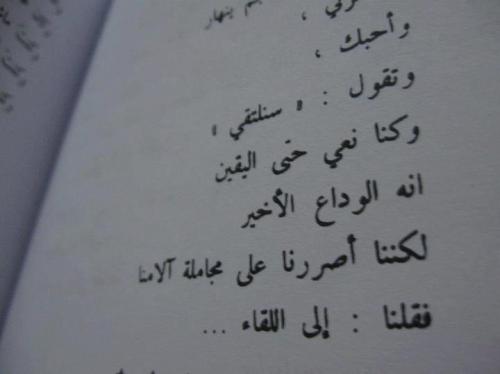 وأحبك ،
وتقول : « سنلتقي »
وكنا نعي حتى اليقين
انه الوداع الأخير
لكننا أصررنا على مجاملة آلامنا
فقلنا : إلى اللقاء ...